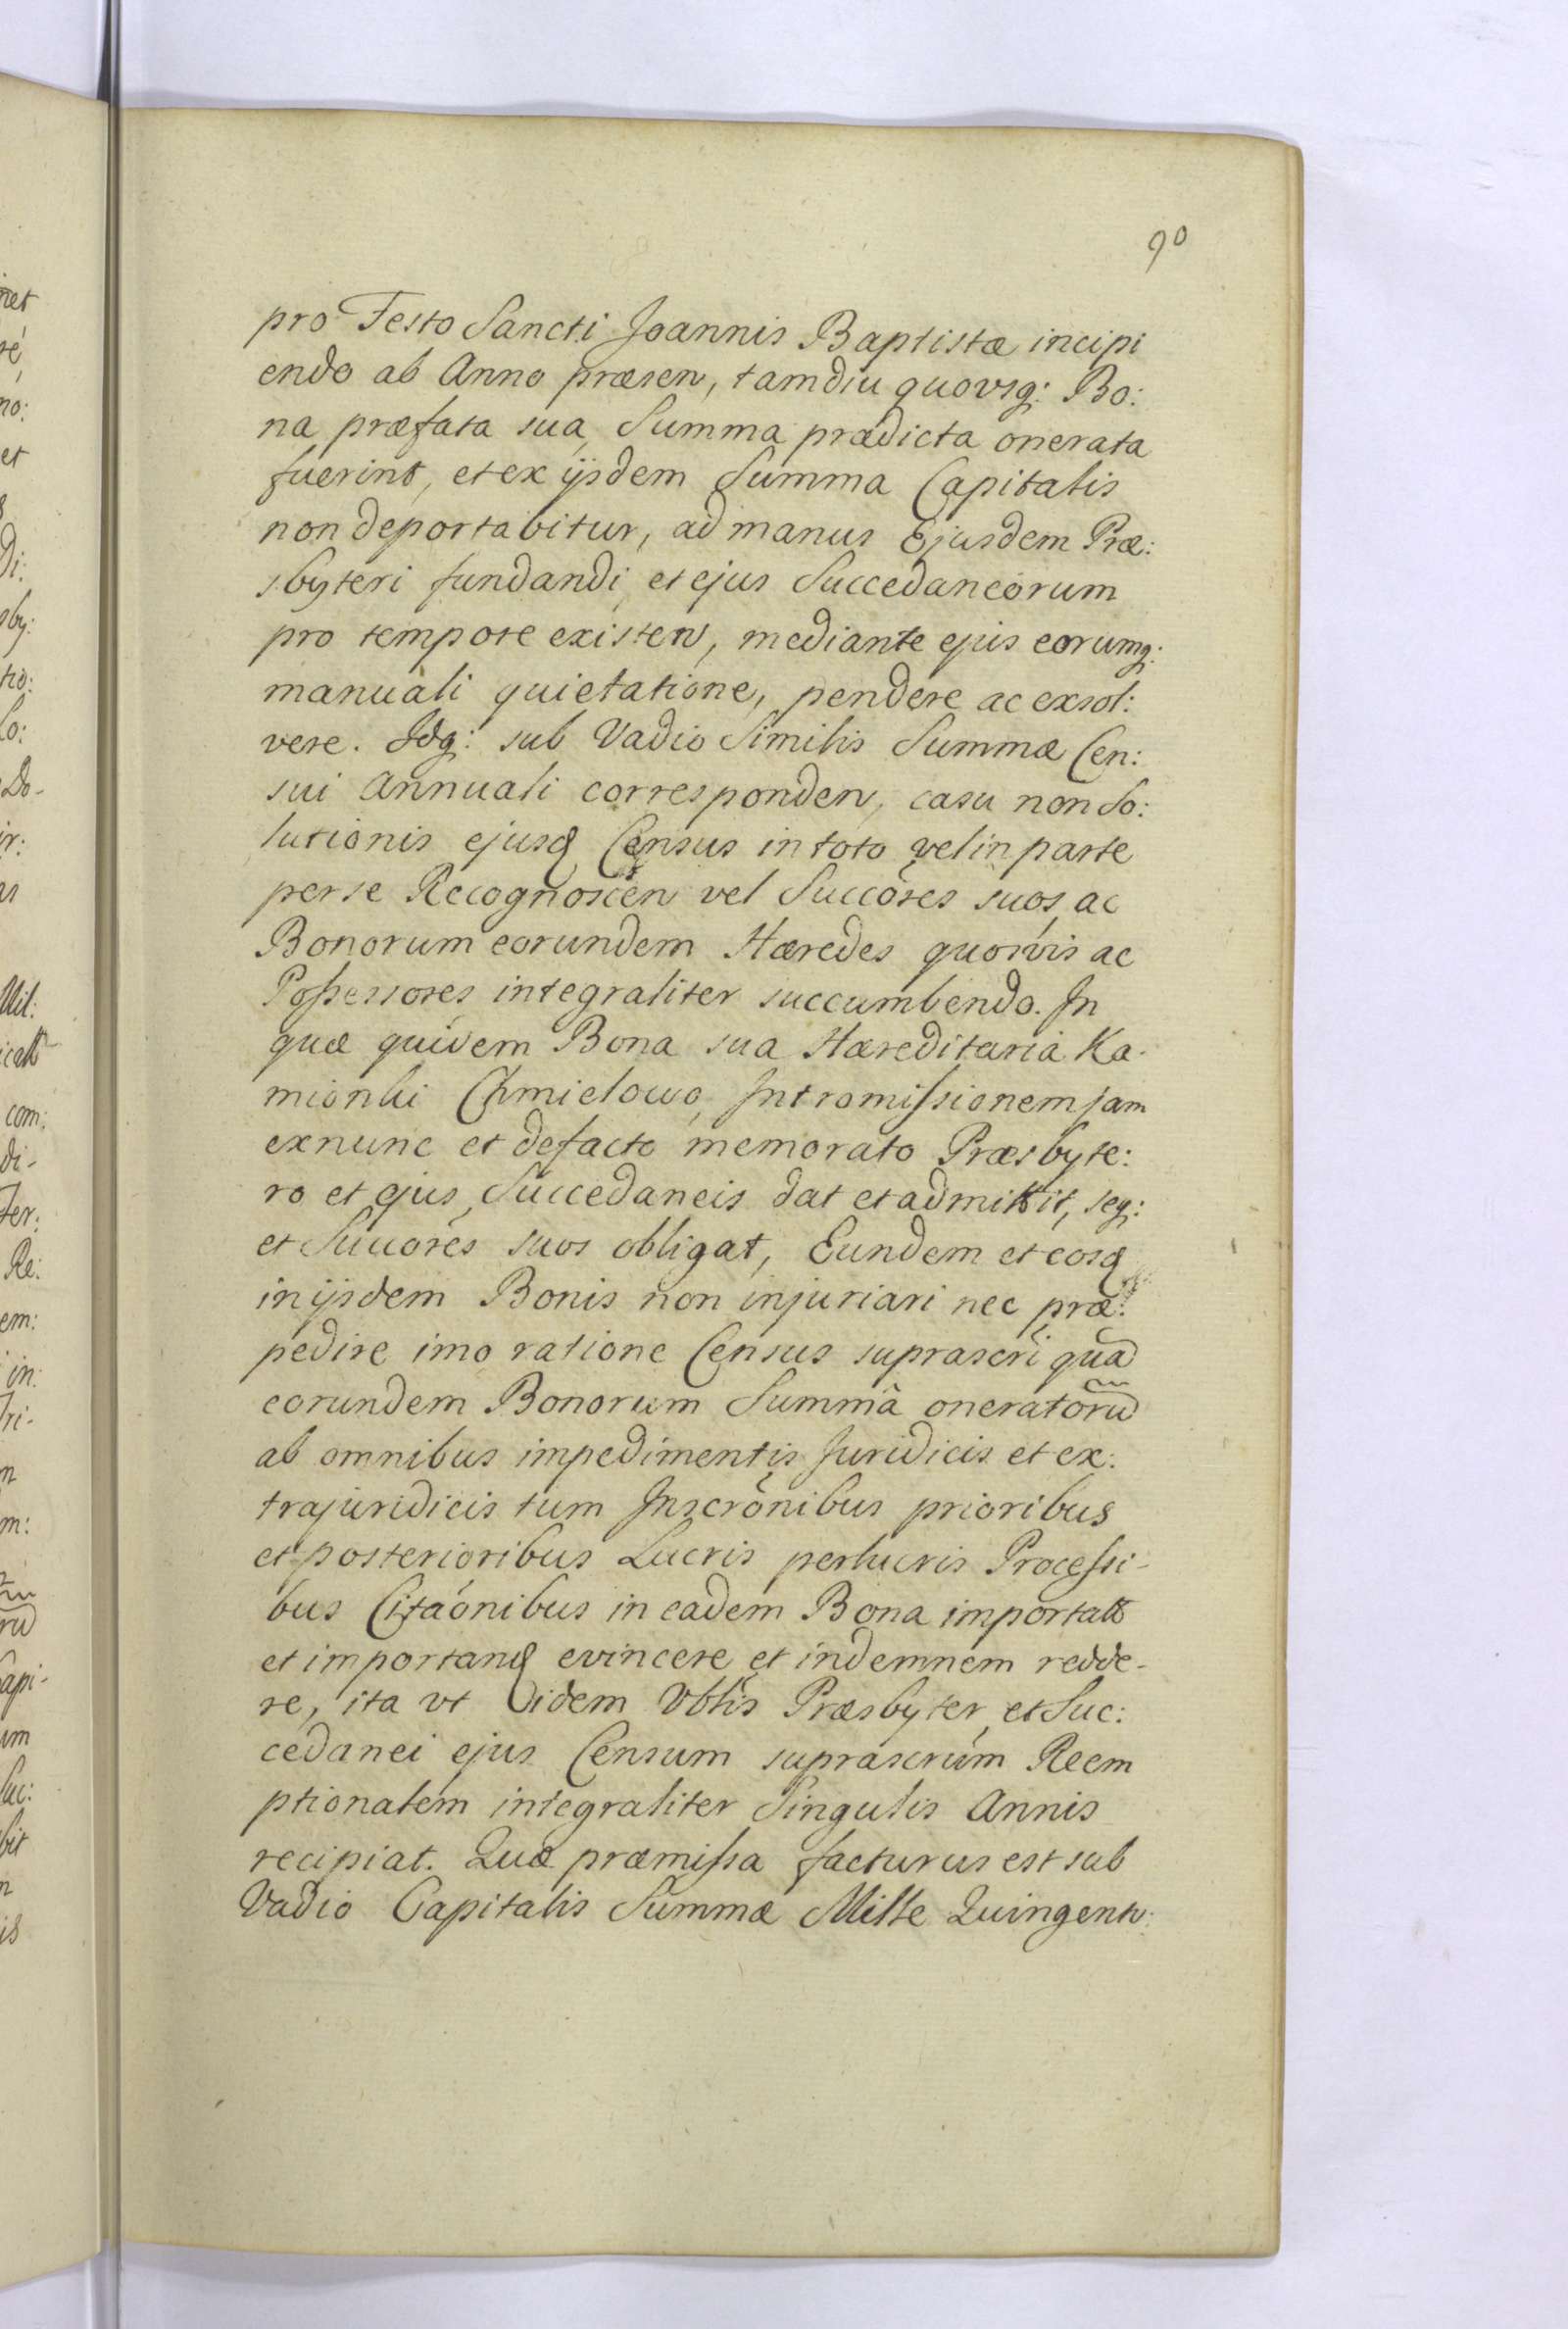 90
pro Festo Sancti Joannis Baptistæ incipi
endo ab Anno præsen, tamdiu quovsq: Bo:
na præfata sua, Summa prædicta onerata
fuerint, et ex ijsdem Summa Capitalis
non deportabitur, ad manus Ejusdem Præ:
sbyteri fundandi, et ejus Succedaneorum
pro tempore existen, mediante ejus eorumq:
manuali quietatione, pendere ac exsol:
vere. Idq: sub Vadio Similis Summæ Cen:
sui Annuali corresponden, casu non So:
lutionis ejusd Census in toto vel in parte
per se Recognoscen vel Succõres suos, ac
Bonorum eorundem Hæredes quosvis ac
Possessores integraliter succumbendo. In
quæ quidem Bona sua Hæreditaria Ka-
mionki Chmielowo, Intromissionem jam
exnunc et defacto memorato Præsbyte:
ro et ejus Succedaneis dat et admittit, seq:
et Succores suos obligat, Eundem et eosd
in ijsdem Bonis non injuriari nec præ:
pedire imo ratione Census suprascri quã
eorundem Bonorum Summâ oneratorũ
ab omnibus impedimentis Juridicis et ex:
trajuridicis tum Inscrõnibus prioribus
et posterioribus Lucris perlucris Processi-
bus Citaõnibus in eadem Bona importatt
et importand evincere et indemnem redde-
re, ita vt idem Vblis Præsbyter, et Suc:
cedanei ejus Censum suprascrũm Reem
ptionalem integraliter Singulis Annis
recipiat. Quæ præmissa facturus est sub
Vadio Capitalis Summæ Mille Quingento:
net
ré
no:
et
Di:
sby:
tio:
So:
Do-
ir:
as
Mil:
icatt
com:
di-
Ter:
Re:
em:
in:
Tri-
n
m:
rũ
Capi-
um
Suc:
bit
n
is